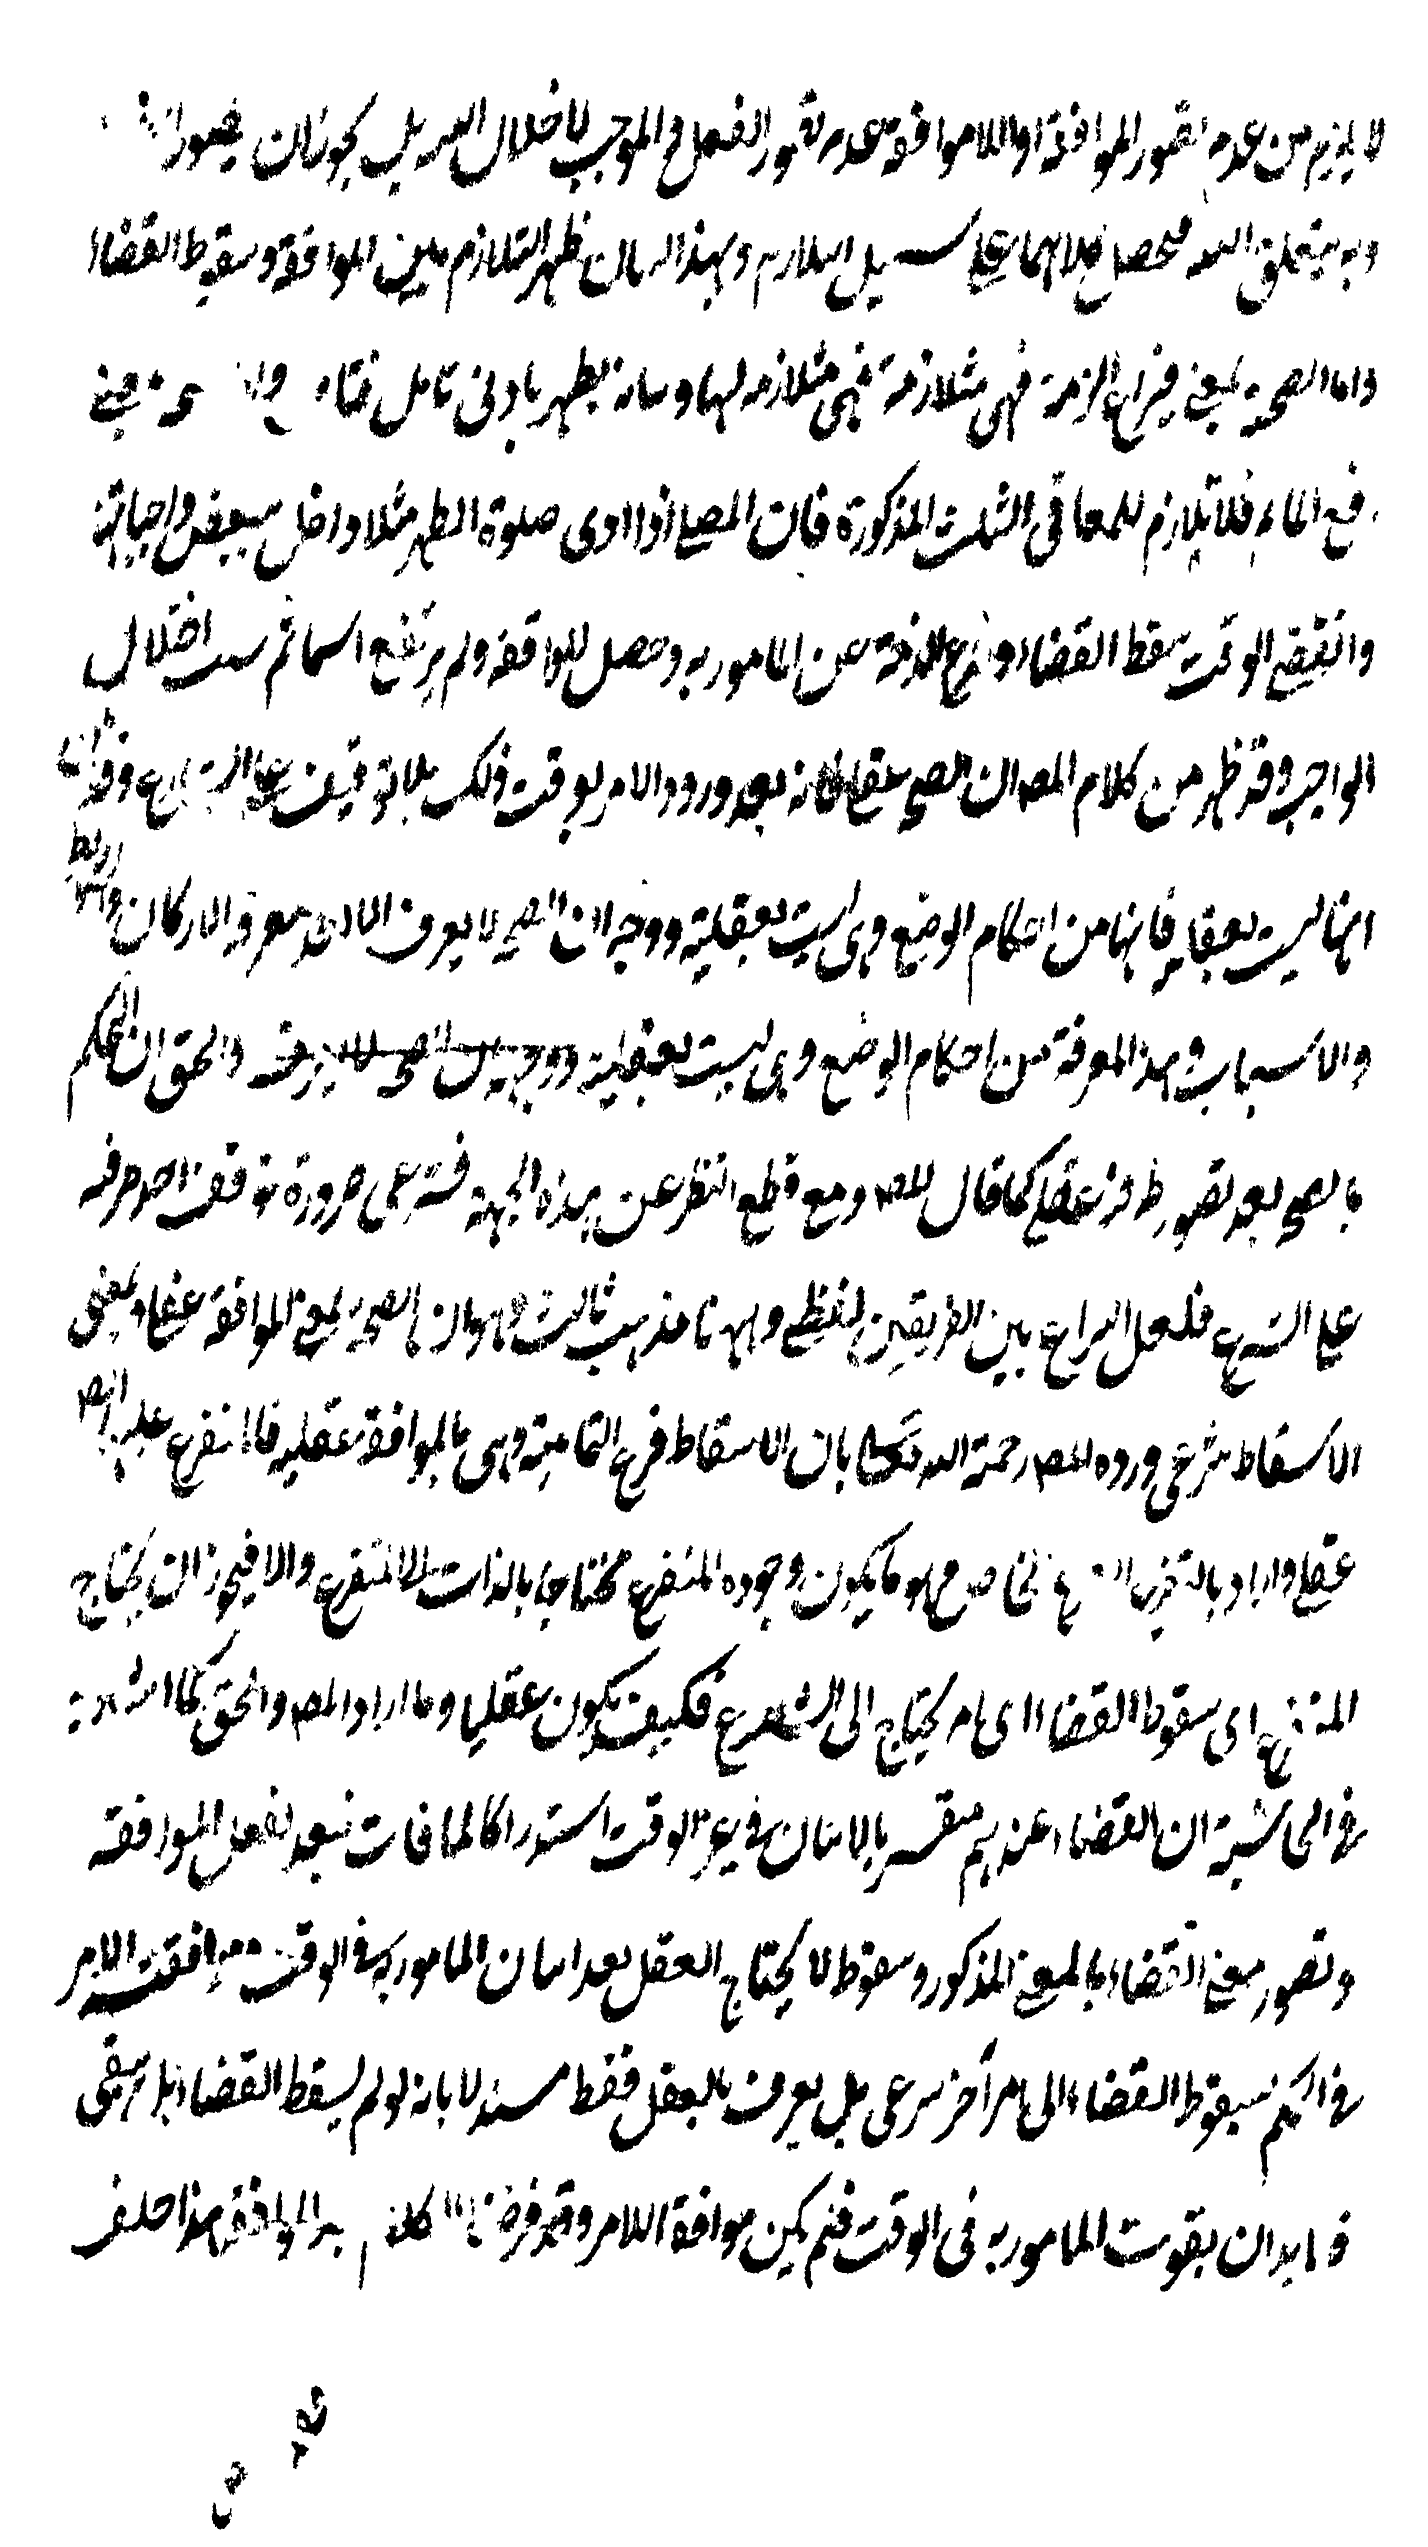 لا يلزم من عدم تصور الموافقة او اللاموافقة عدم تصور الفعل الموجب لاخلال بل يجوز ان يتصور
وبه يتعلق فيحصل كلاهما على سبيل التلازم وبهذا البيان ظهر التلازم بين الموافقة وسقوط القضاء
واما الصحة بمعنى فراغ الذمة فهي متلازمة فهي متلازمة لهما وبيانه يظهر بادنى تامل فتامل بمعنى
رفع الماثم فلا تلازم للمعاني الثلث المذكورة فان المصلي اذا ادى صلوة الظهر مثلا واخل ببعض واجباته
وانقضى الوقت سقط القضاء وفرغ الذمة عن المامور به وحصل الموافقة ولم يرتفع الماثم بسبب اخلال
الواجب وقد ظهر من كلام المصـ ان الصحة عقلي فانه بعد ورود الامر يوقت ذلك بلا توقيف على الشارع وقد
انها ليست بعقلية فانها من احكام الوضع وهي ليست بعقلية ووجه ان الصحة لا يعرف الا بعد معرفة الاركان والشرايط
والاسباب وهذا المعرفة من احكام الوضع وهي ليست بعقلية والحق ان الحكم
بالصحة بعد تصور طرفيه عقلي كما قال المصـ ومع قطع النظر عن هذه الجهة فشرعي ضرورة توقف احد طرفيه
على الشرع فلعل النزاع بين الفريقين لفظي وههنا مذهب ثالث وهو ان الصحة بمعنى الموافقة عقلي وبمعنى
الاسقاط شرعي ورده المصـ رحمة الله تعالى بان الاسقاط فرع التمامية وهي بالموافقة عقلية فما تفرع عليه ايضا
عقلي واراد بالتفرع الخاص وهو ما يكون وجوده المتفرع محتاجا بالذات الى المتفرع والا فيجوز ان يحتاج
المتفرع اي سقوط القضاء الى ما يحتاج الى الشرع فكيف يكون عقليا وما اراد المصـ والحق كما اشار به
في الحاشية ان القضاء عندهم مفسر بالاتيان في غير الوقت استدراكا لما فات فبعد فعل الموافقة
وتصور معنى القضاء بالمعنى المذكور وسقوط لا يحتاج العقل بعد اتيان المامور به في الوقت موافقة الامر
في الحكم بسقوط القضاء الى امر آخر شرعي بل يعرف بالعقل فقط مستدلا بانه لو لم يسقط القضاء بل يبقى
فلا بد ان يفوت المامور به في الوقت فلم يكن موافقة الامر وقد فرضنا الكلام بعد الموافقة هذا خلف